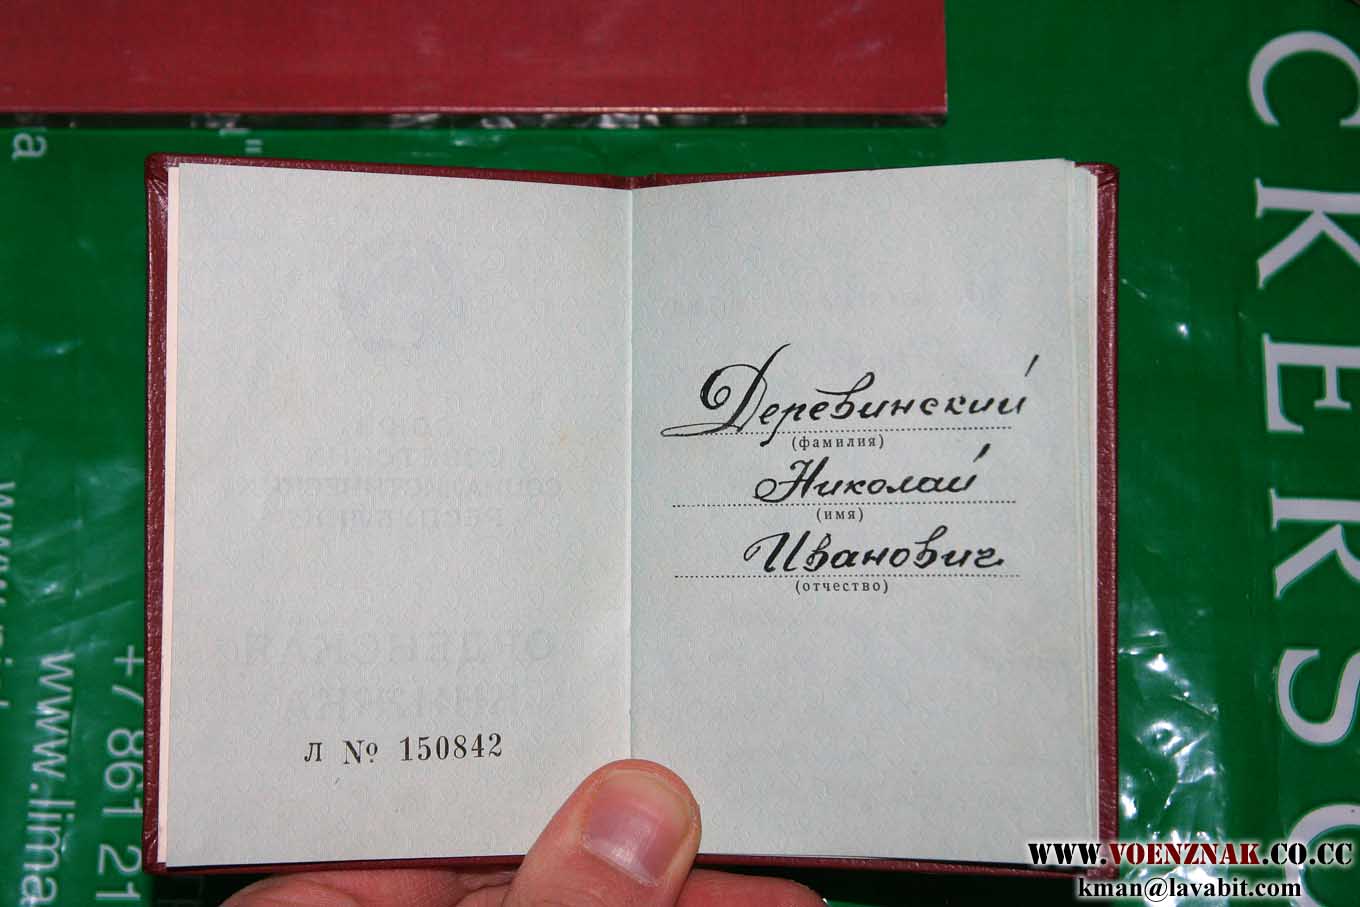 л № 150842
Деревинский
(фамилия)
Николай
(имя)
Иванович
(отчество)
CKERSC
+7 861 21
www.lima
WWW.VOENZNAK.CO.CC
kman@lavabit.com